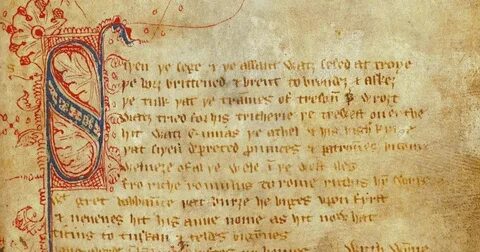 Siþen þe sege & þe assaut watz sesed at troye
þe borȝ brittened & brent to brondeȝ & askez
þe tulk þat þe trammes of tresoun þer wroȝt
watz tried for his tricherie þe trewest on erthe
hit watz ennias þe athel & his highe kynde
þat siþen depreced prouinces & patrounes bicome
welneȝe of al þe wele in þe west iles
fro riche romulus to rome ricchis hym swyþe
gret bobbaunce þat burȝe he biges vpon fyrst
& neuenes hit his aune nome as hit now hat
ticius to tuskan teldes bigynnes